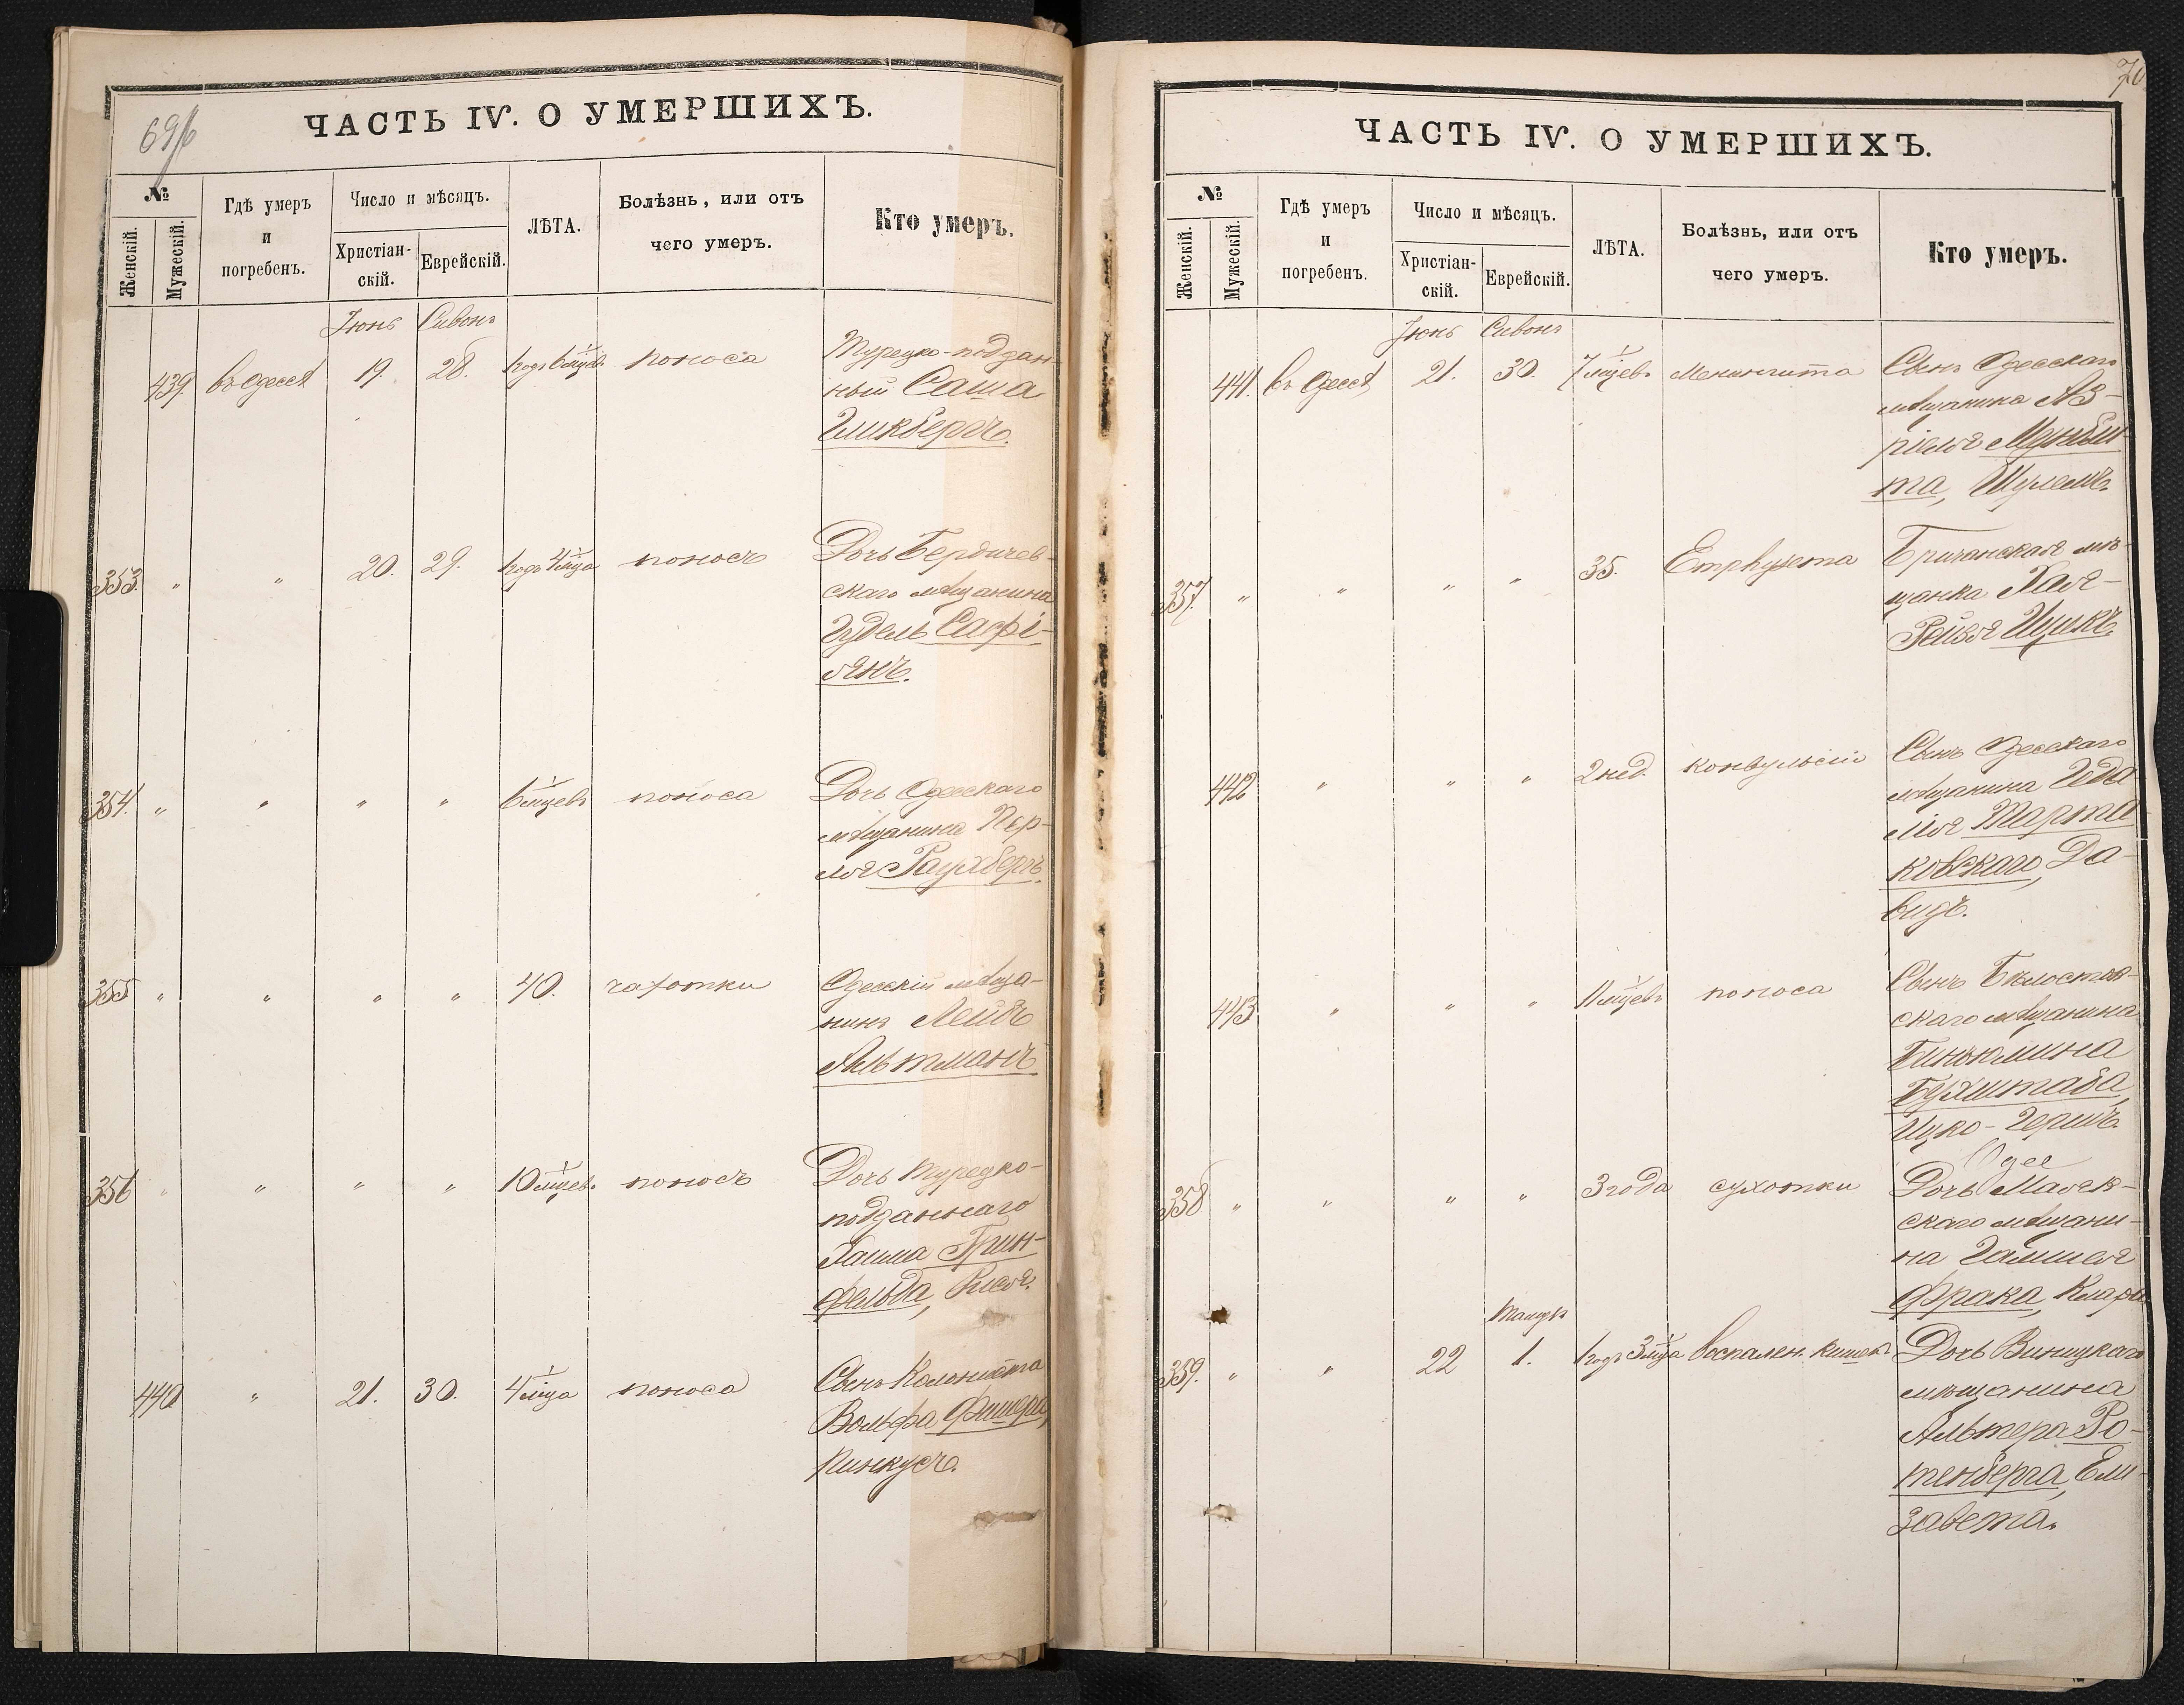 69/б
ЧАСТЬ IV. О УМЕРШИХЪ.
№
Женскій.
Мужескій.
Гдѣ умеръ
и
погребенъ.
Число и мѣсяцъ.
Христіан-
скій.
Еврейскій.
ЛѢТА.
Болѣзнь, или отъ
чего умеръ.
Кто умеръ.
Іюнь Сивонъ
439. въ Одессѣ 19. 28. 1 годъ 6 мцев. поноса Турецко-поддан-
ный Саша
Гликбергъ.
353. " " 20. 29. 1 годъ 4 мца поносъ Дочь Бердичев-
скаго мѣщанина
Гудель Сафі-
янъ.
354. " " " " 6 мцевъ поноса Дочь Одесскаго
мѣщанина Пер-
ля Раухбергъ.
355 " " " " 40. чахотки Одесскій мѣща-
нинъ Лейбъ
Альтманъ.
356 " " " " 10 мцев. поносъ Дочь Турецко-
подданнаго
Хаима Грин-
фельда, Рися.
440 " 21. 30. 4 мца поноса Сынъ Колониста
Вольфа Фишера,
Пинкусъ.
70
ЧАСТЬ IV. О УМЕРШИХЪ.
№
Женскій.
Мужескій.
Гдѣ умеръ
и
погребенъ.
Число и мѣсяцъ.
Христіан-
скій.
Еврейскій.
ЛѢТА.
Болѣзнь, или отъ
чего умеръ.
Кто умеръ.
Іюнь Сивонъ
441. въ Одессѣ 21. 30. 7 мцевъ Менингита Сынъ Одесскаго
мѣщанина Аз-
ріеля
та, Шулемъ.
357. " " " " 35. Emphysema Бричанская мѣ-
щанка Хая-
Рейзя
442 " " " 2 нед. конвульсіи Сынъ Одесскаго
мѣщанина Геда
лія Тарта
ковскаго, Да-
видъ.
443 " " " 11 мцевъ поноса Сынъ Бѣлосток-
скаго мѣщанина
Биньюмина
Бухштаба,
Ицко-Гершъ.
Одес
358 " " " " 3 года сухотки Дочь Маяк-
скаго мѣщани-
на
Фрака, Клара
Тамузъ
359. " " 22 1. 1 годъ 3 мца воспален. кишекъ Дочь Виницкаго
мѣщанина
Альтера Ро-
тенберга, Ели-
завета.